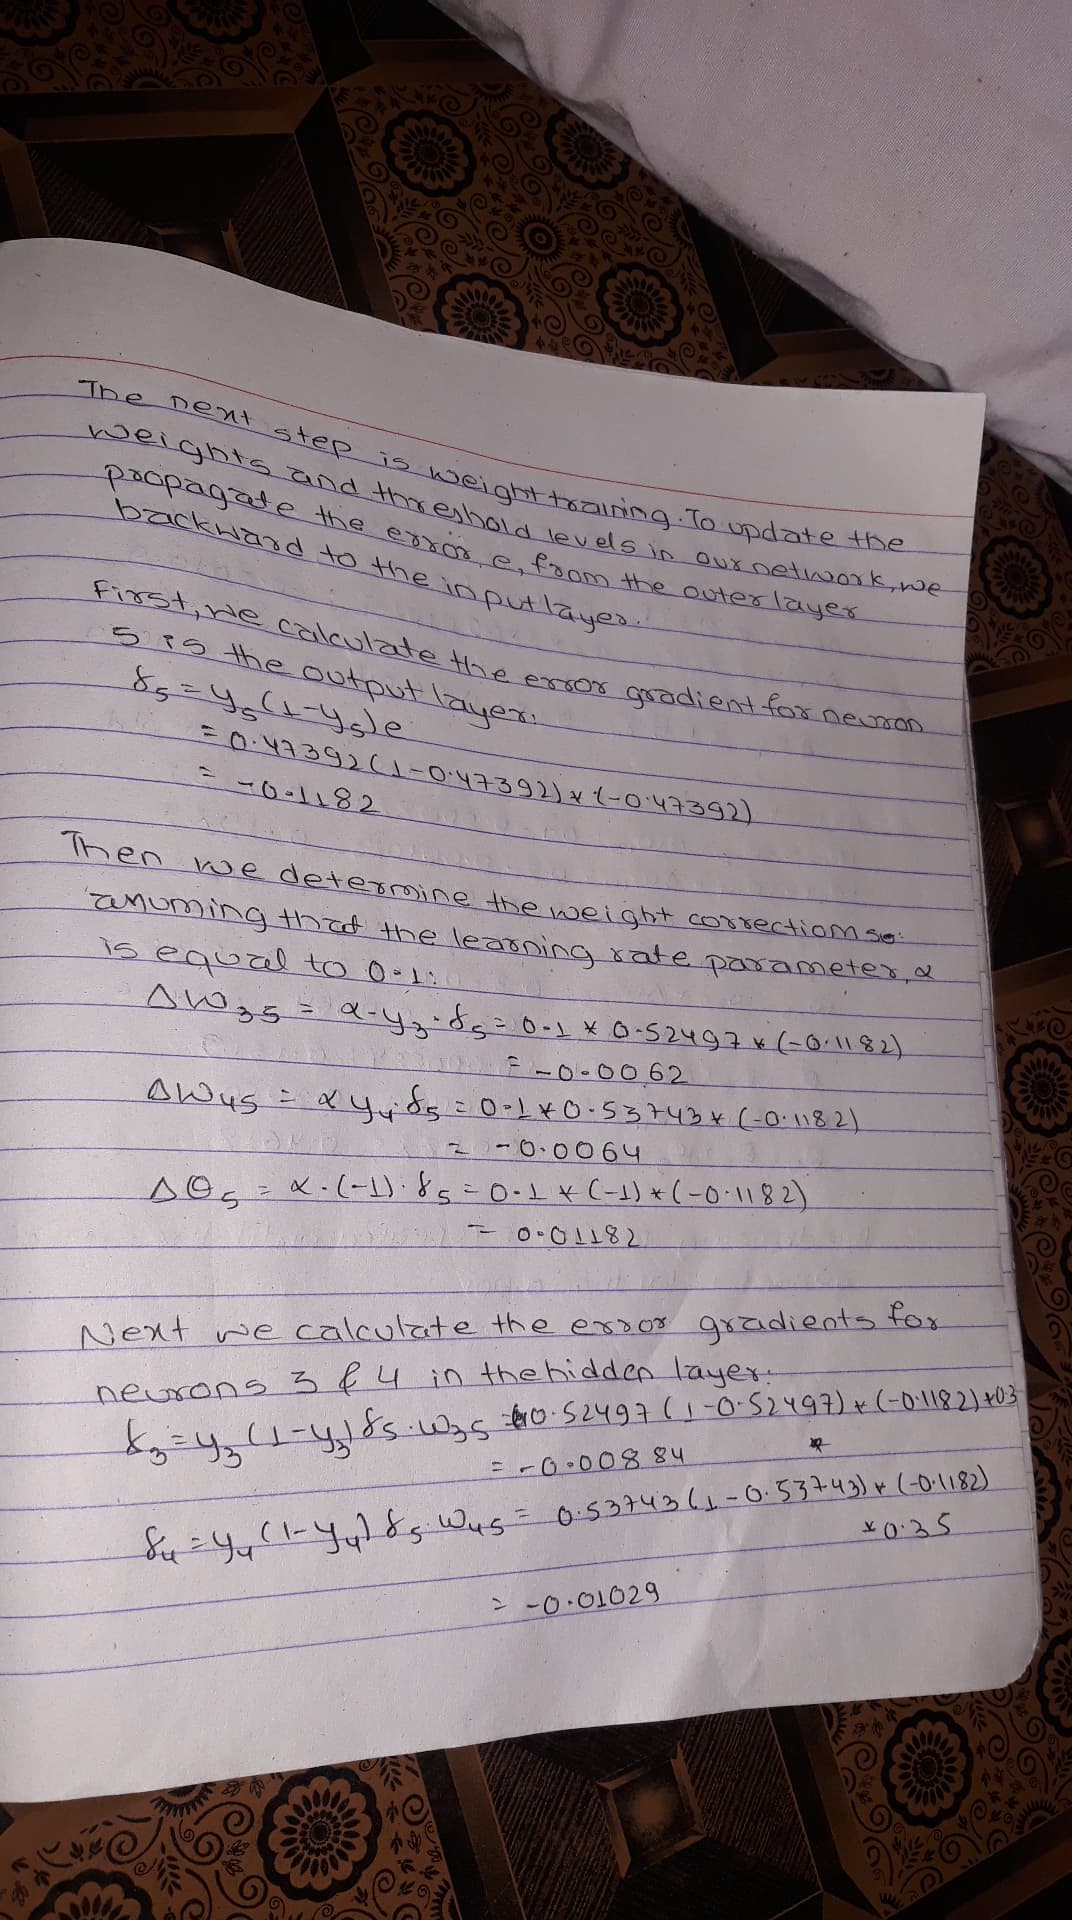 The next step is weight training. To update the
weights and threshold levels in our network, we
propagate the error, e, from the outer layer
backward to the input layer.
First, we calculate the error gradient for neuron
5 is the output layer:
δ5 = y5 (1-y5)e
= 0.47392 (1-0.47392) * (-0.47392)
= -0.1182
Then we determine the weight corrections
assuming that the learning rate parameter, α
is equal to 0.1:
ΔW35 = α.y3.δ5 = 0.1 * 0.52497 * (-0.1182)
= -0.0062
ΔW45 = α y4.δ5 = 0.1 * 0.53743 * (-0.1182)
= -0.0064
Δθ5 = α.(-1).δ5 = 0.1 * (-1) * (-0.1182)
= 0.01182
Next we calculate the error gradients for
neurons 3 & 4 in the hidden layer:
δ3 = y3 (1-y3) δ5.W35 = 0.52497 (1-0.52497) * (-0.1182) * 0.3
= -0.00884
δ4 = y4 (1-y4) δ5.W45 = 0.53743 (1-0.53743) * (-0.1182)
* 0.35
= -0.01029